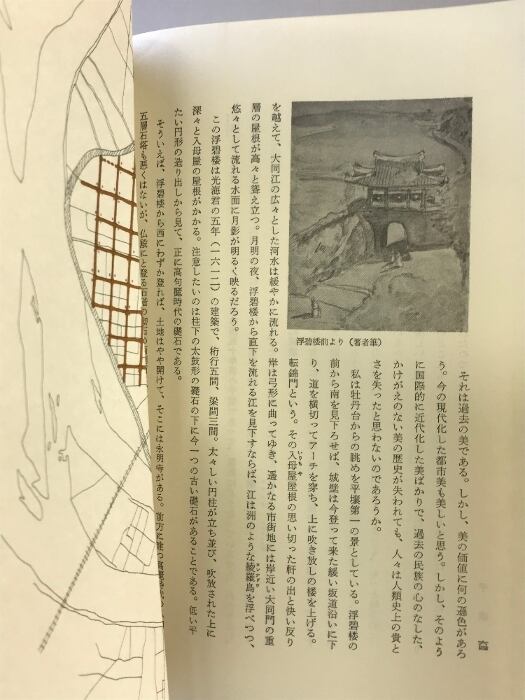 それは過去の美である。しかし、美の価値に何の遜色があろ
う。今の現代化した都市美も美しいと思う。しかし、そのよう
に国際的に近代化した美ばかりで、過去の民族の心のなした、
かけがえのない美の歴史が失われても、人々は人類史上の貴と
さを失ったと思わないのであろうか。
私は牡丹台からの眺めを平壌第一の景としている。浮碧楼の
前から南を見下ろせば、城壁は今登って来た緩い坂道沿いに下
り、道を横切ってアーチを穿ち、上に吹き放しの楼を上げる。
転錦門という。その入母屋屋根の思い切った軒の出と快い反り
いりもや
浮碧楼前より(著者筆)
を越えて、大同江の広々とした河水は緩やかに流れる。岸は弓形に曲ってゆき、遥かなる市街地には岸近い大同門の重
層の屋根が高々と聳え立つ。月明の夜、浮碧楼から直下を流れる江を見下すならば、江は洲のような綾羅島を浮べつつ、
悠々として流れる水面に月影が明るく映るだろう。
この浮碧楼は光海君の五年(一六一二)の建築で、桁行五間、梁間三間。太々しい円柱が立ち並び、吹放された上に
深々と入母屋の屋根がかかる。注意したいのは柱下の太鼓形の礎石の下に今一つの古い礎石があることである。低い平
たい円形の造り出しから見て、正に高句麗時代の礎石である。
そういえば、浮碧楼から西にわずか登れば、土地はやや開けて、そこには永明寺がある。前方に建つ
五層石塔も悪くはないが、仏殿にと登る石階の